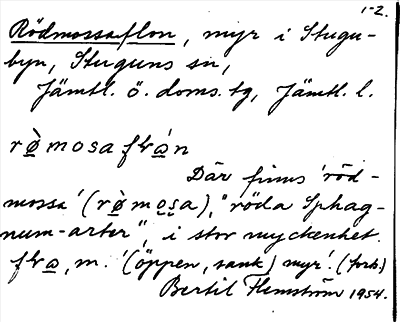 1-2.
Rödmossaflon, myr i Stugu-
byn, Stuguns sn,
Jämtl. ö. doms. tg, Jämtl. l.
rø̀mosaflωn
Där finns 'röd-
mossa' (rø̀mosa), "röda Sphag-
num-arter", i stor myckenhet.
flω, m. '(öppen, sank) myr'. (forts.)
Bertil Flemström 1954.